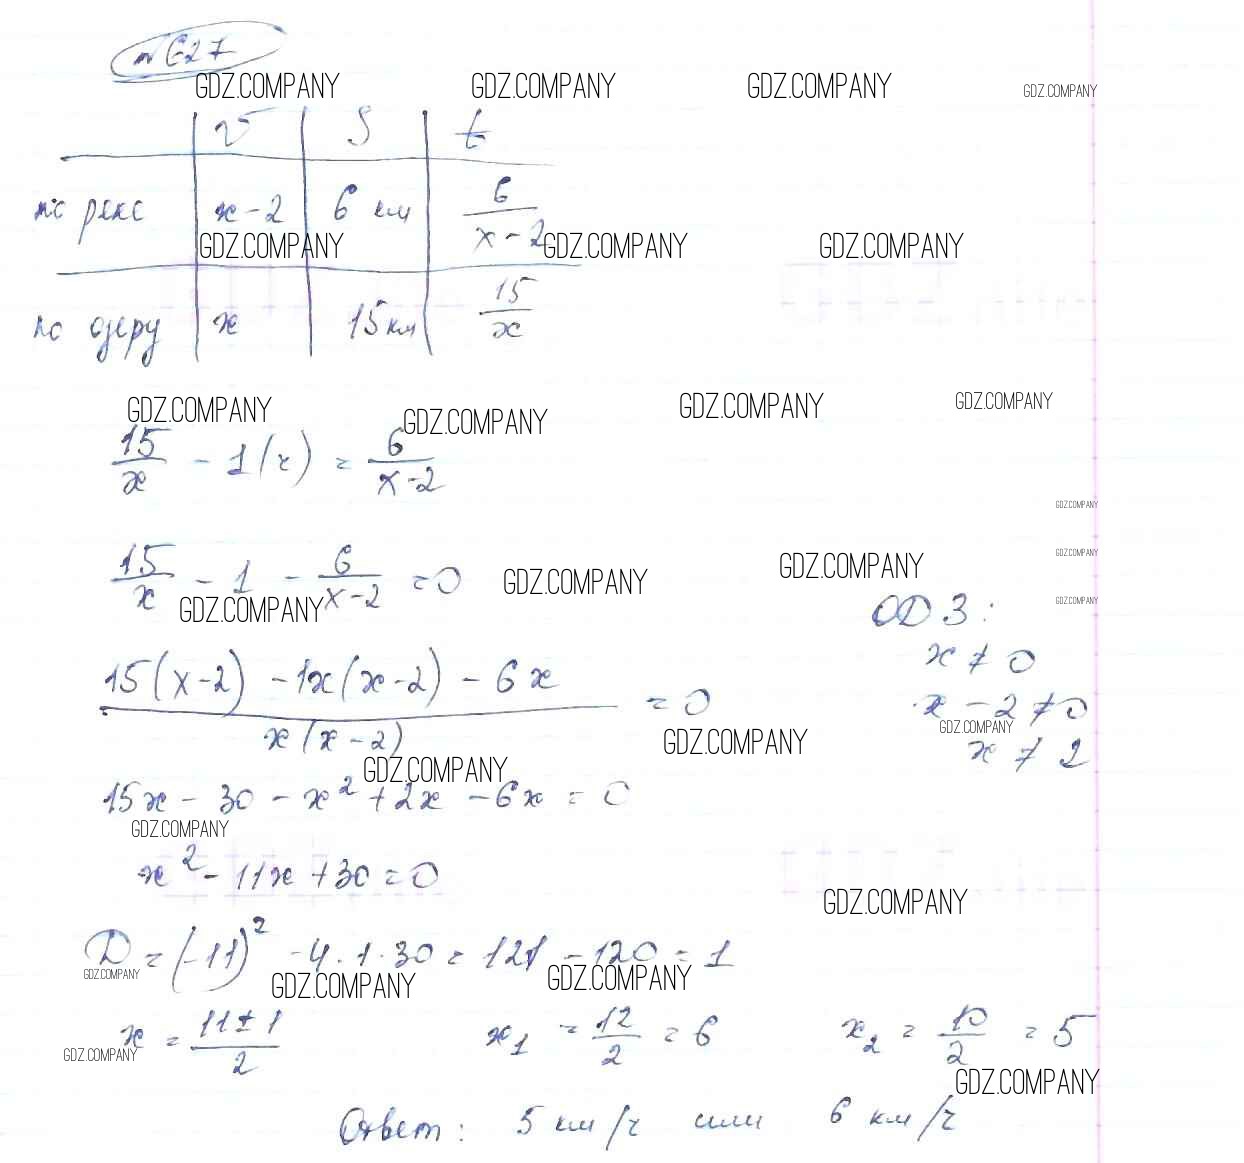 №627
GDZ.COMPANY GDZ.COMPANY GDZ.COMPANY GDZ.COMPANY
v S t
по реке x-2 6 км 6/(x-2)
GDZ.COMPANY GDZ.COMPANY GDZ.COMPANY
по озеру x 15 км 15/x
GDZ.COMPANY GDZ.COMPANY GDZ.COMPANY GDZ.COMPANY
15/x - 1(ч) = 6/(x-2)
GDZ.COMPANY
15/x - 1 - 6/(x-2) = 0
GDZ.COMPANY GDZ.COMPANY GDZ.COMPANY
GDZ.COMPANY GDZ.COMPANY
ОДЗ:
x ≠ 0
x - 2 ≠ 0
GDZ.COMPANY
x ≠ 2
(15(x-2) - 1x(x-2) - 6x)/(x(x-2)) = 0
GDZ.COMPANY
GDZ.COMPANY
15x - 30 - x² + 2x - 6x = 0
GDZ.COMPANY
x² - 11x + 30 = 0
GDZ.COMPANY
D = (-11)² - 4·1·30 = 121 - 120 = 1
GDZ.COMPANY GDZ.COMPANY GDZ.COMPANY
x = (11±1)/2 x₁ = 12/2 = 6 x₂ = 10/2 = 5
GDZ.COMPANY GDZ.COMPANY
Ответ: 5 км/ч или 6 км/ч